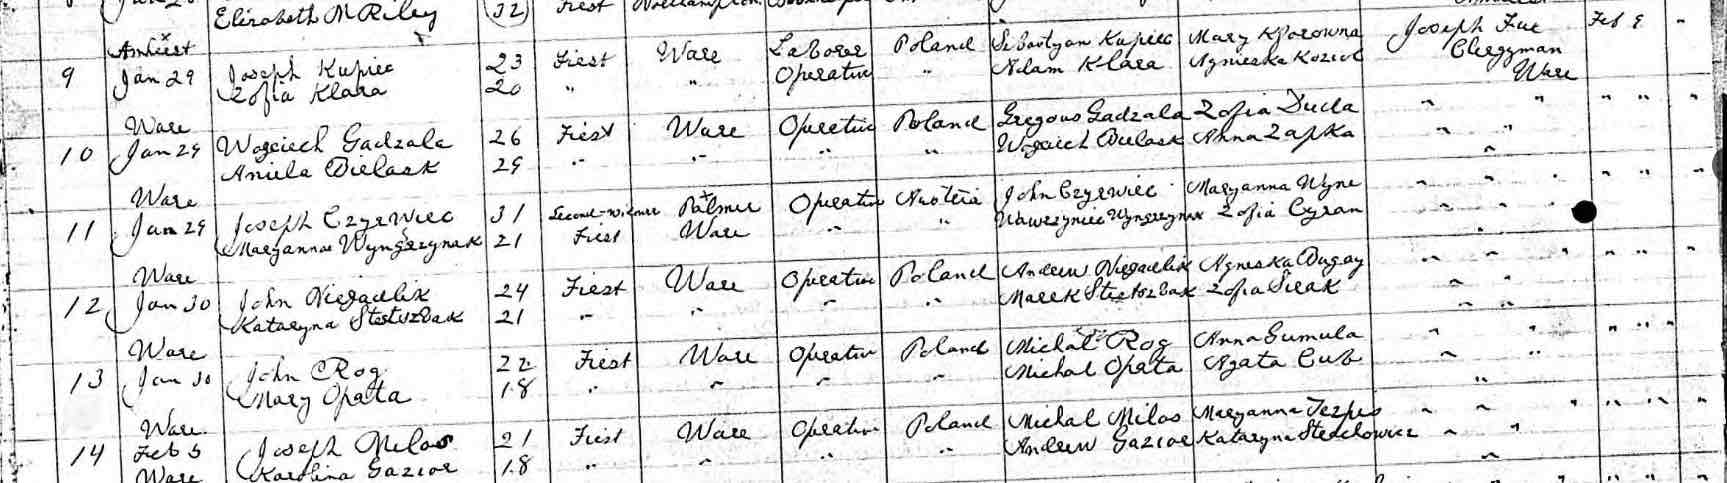 Elizabeth M Riley (32) First
Amherst Ware Laborer Poland Sebastyan Kupiec Mary Kporowna Joseph Fuc Feb 9 "
9 Jan 29 Joseph Kupiec 23 First Ware Operative " Adam Klara Agnieska Koziol Clergyman
Zofia Klara 20 " " Ware
Ware
10 Jan 29 Wojciech Gadzala 26 First Ware Operative Poland Gregous Gadzala Zofia Ducla " " " " "
Aniela Bielask 29 " " " " Wojciech Bielask Anna Zapka " "
Ware "
11 Jan 29 Joseph Czyrwiec 31 Second-widower Palmer Operative Austria John Czyrwiec Maryanna Wyne " " " " "
Maryanna Wyngrzynak 21 First Ware " " Wawrzyniec Wyngrzynak Zofia Cyran " "
Ware "
12 Jan 30 John Niegadlik 24 First Ware Operative Poland Andrew Niegadlik Agneska Dugay " " " " "
Kataryna 21 " " " " Marek Zofia Sirak " "
Ware " "
13 Jan 30 John Rog 22 First Ware Operative Poland Michal Rog Anna Gumula " " " " "
Mary Opata 18 " " " " Michal Opata Agata Cub " "
Ware "
14 Feb 5 Joseph Milos 21 First Ware Operative Poland Michal Milos Maryanna " " " " " "
Karolina Gazior 18 " " " " Andrew Gazior Kataryna Stechowicz " "
Ware "